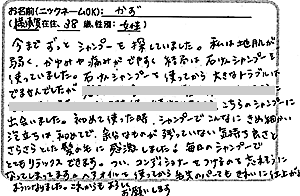 お名前(ニックネームOK): かず
(横須賀在住、38歳、性別: 女性)
今までずっとシャンプーを探していました。私は地肌が
弱く、かゆみや痛みがでやすく 結局は石けんシャンプーを
使っていました。石けんシャンプーを使ってから大きなトラブルは
でませんでしたが
こちらのシャンプーに
出会いました。初めて使った時、シャンプーでこんなにきめ細かい
泡立ちは、初めてで、余分なものが残っていない気持ち良さと
さらさらとした髪の毛に感激しました!毎日のシャンプーで
とてもリラックスできます。つい、コンディショナーをつけるのも忘れそうに
なってしまってます。ヘアオイルも使ってから毛先のパーマもきれいに仕上がる
ようになりました。これからもよろしく
お願いします